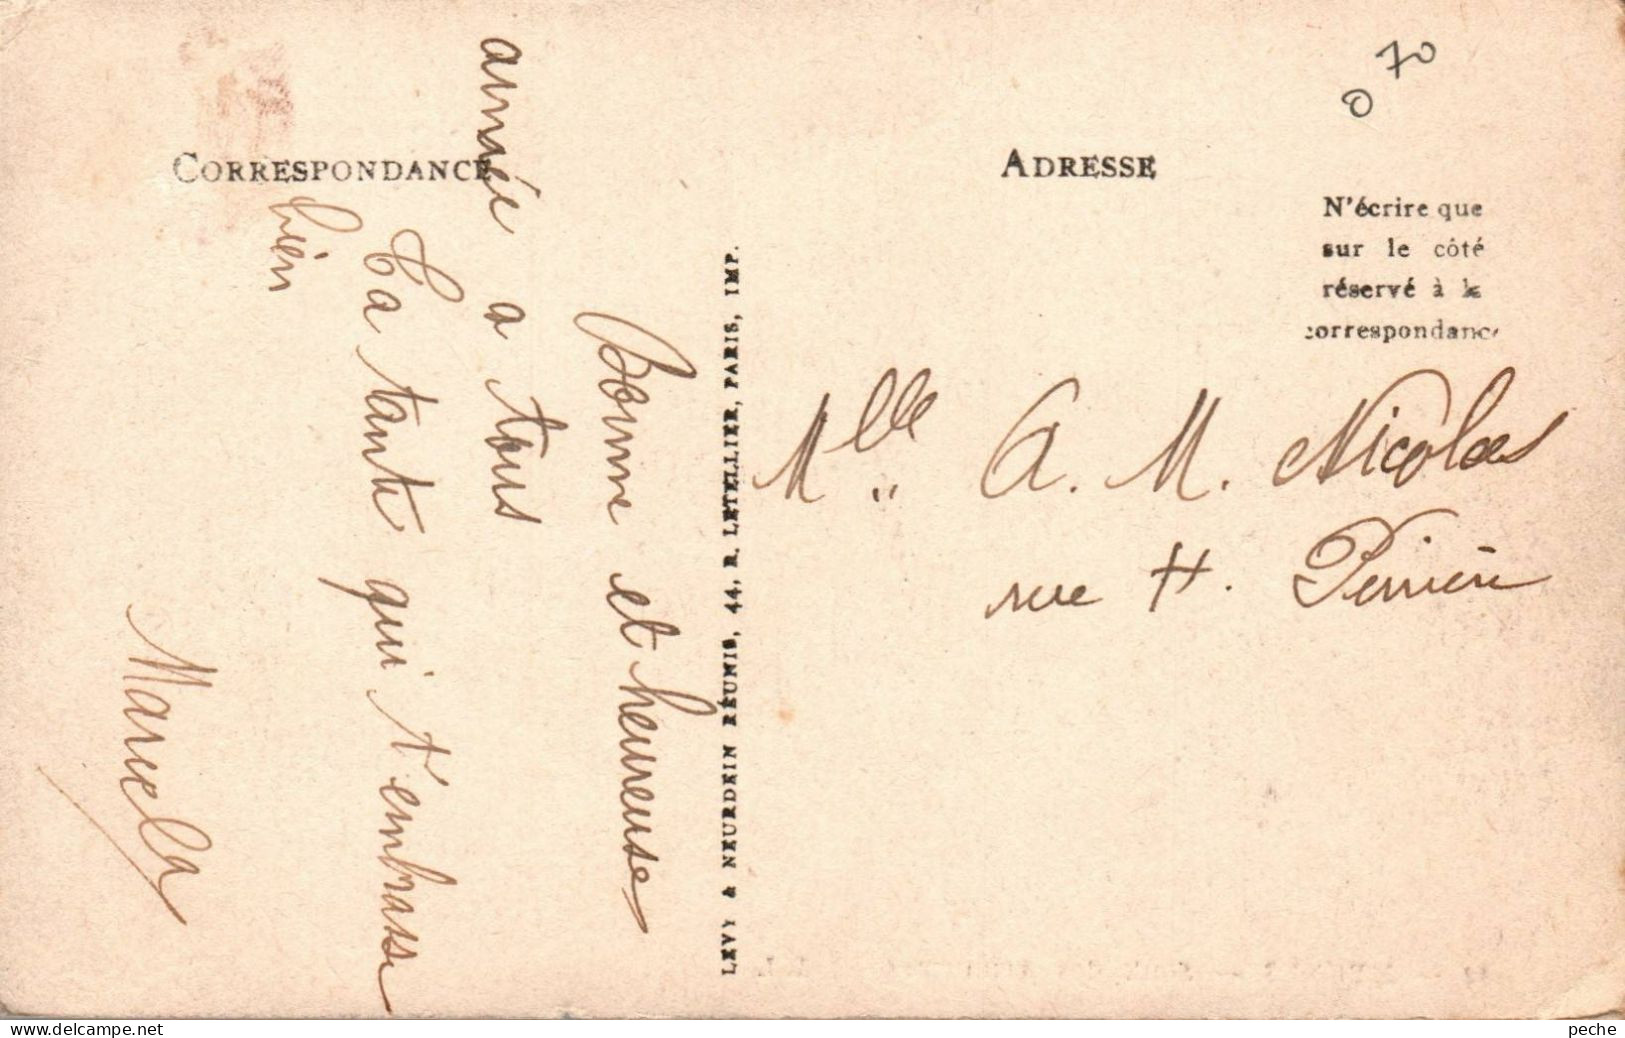 0 70
CORRESPONDANCE
ADRESSE
N'écrire que
sur le côté
réservé à la
correspondance
Bonne et heureuse
année a tous
Ta tante qui t'embrasse
bien
Marcela
LEVY & NEURDEIN RÉUNIS, 44, R. LETELLIER, PARIS, IMP.
Mlle A. M. Nicolas
rue H. Perrière
delcampe.net
peche